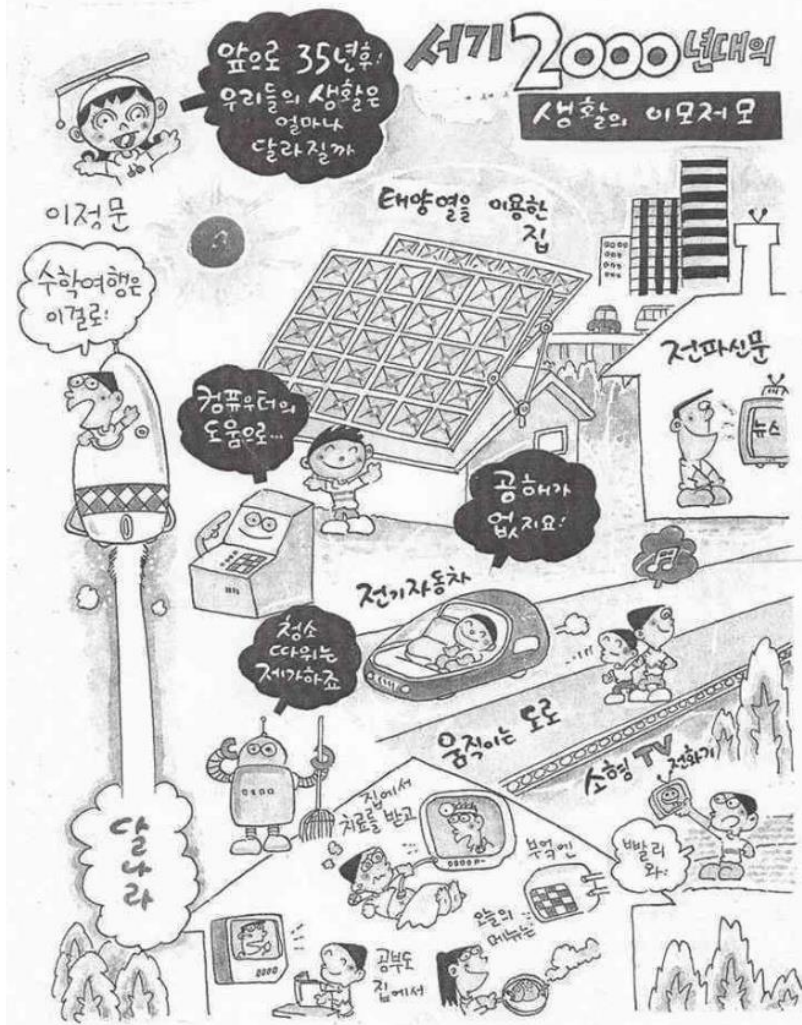 앞으로 35년후!
우리들의 생활은
얼마나
달라질까
서기 2000년대의
생활의 이모저모
이정문
수학여행은
이걸로!
태양열을 이용한
집
전파신문
뉴스
컴퓨우터의
도움으로...
공해가
없지요!
전기자동차
청소
따위는
제가하죠
움직이는 도로
소형 TV 전화기
빨리
와!
달나라
집에서
치료를 받고
부엌엔
오늘의
메뉴는
공부도
집에서